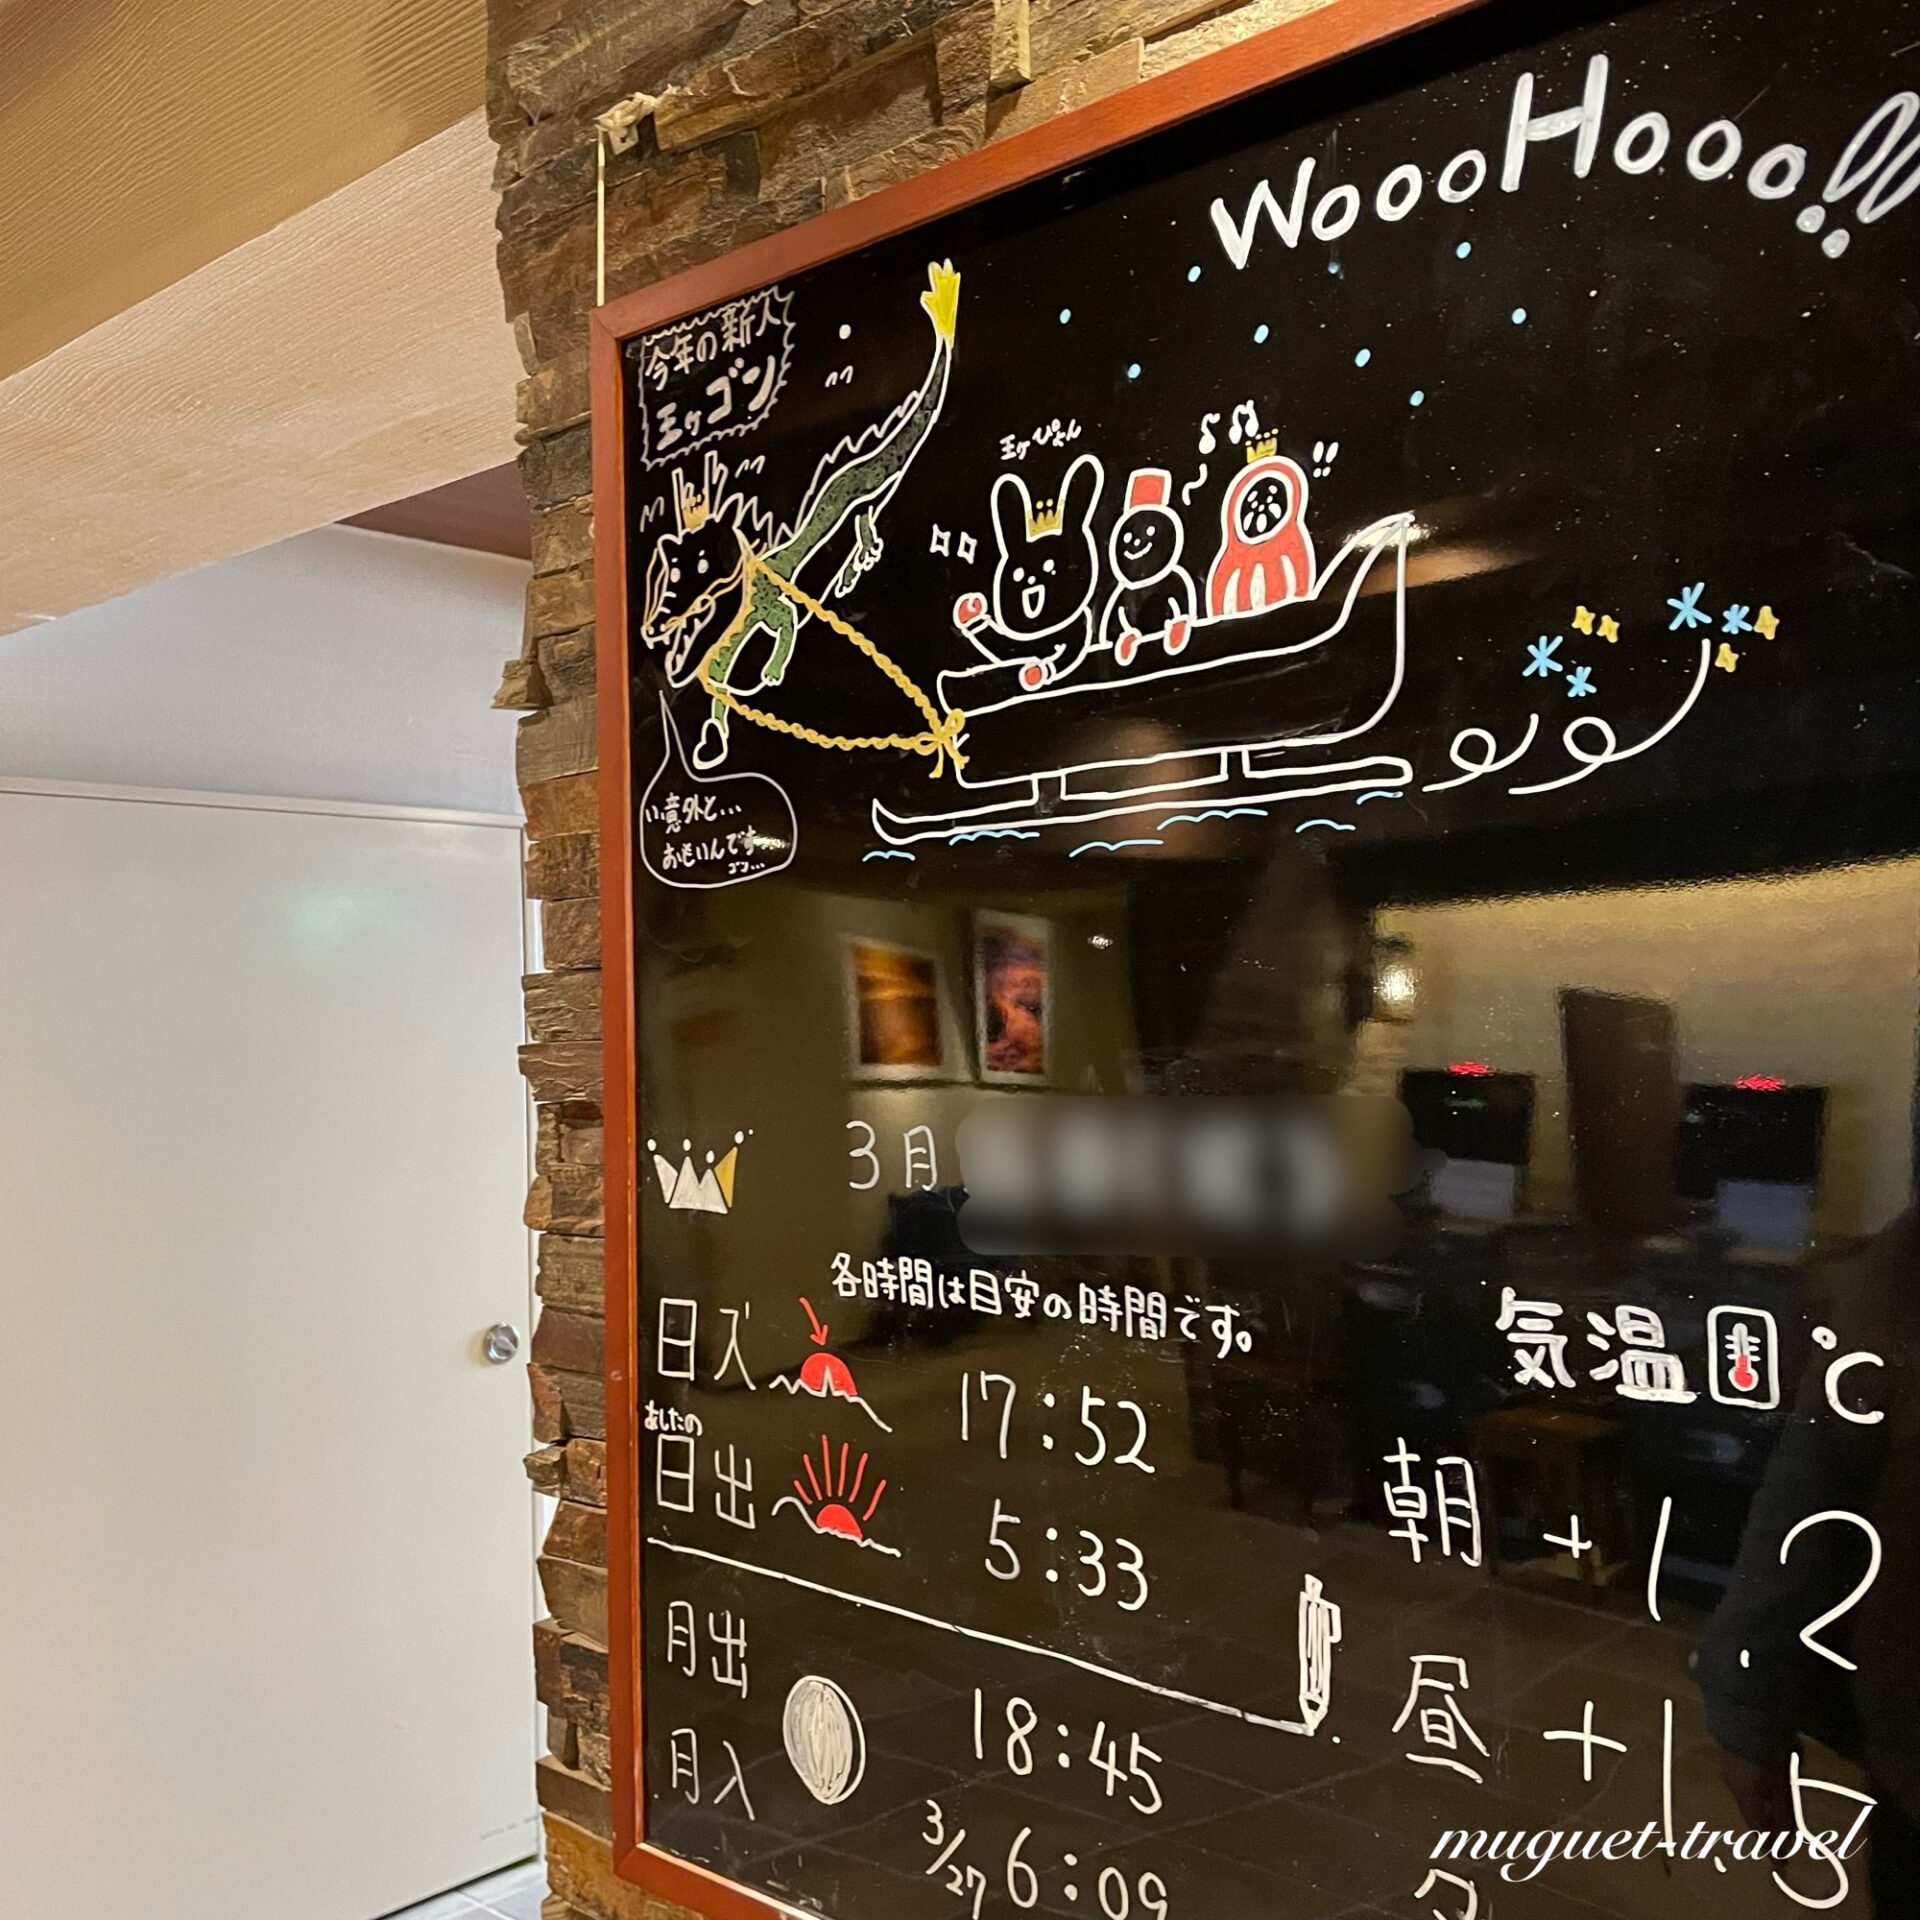 WoooHooo!!
今年の新人
王ヶゴン
王ヶぴょん
!!
い意外と...
おもいんです
ゴン...
3月
各時間は目安の時間です。
日入 17:52
あしたの
日出 5:33
月出 18:45
月入 3/27 6:09
気温 ℃
朝 +1.2
昼 +1.5
muguet-travel